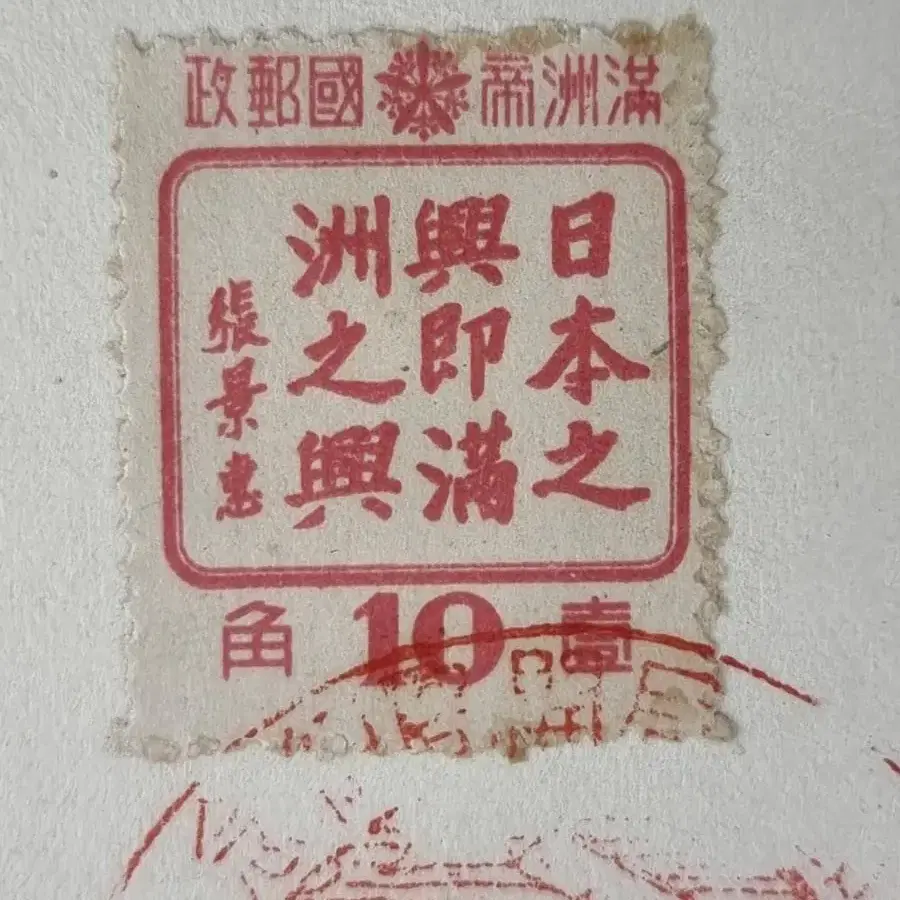 滿洲帝國郵政
日本之
興即滿
洲之興
張景惠
壹10角